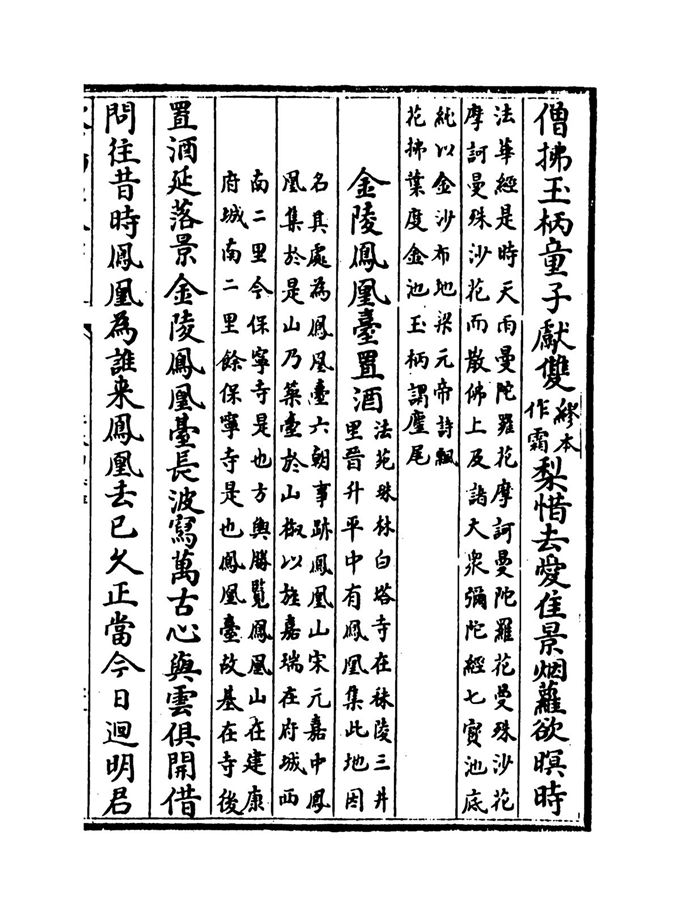 僧拂玉柄童子獻雙繆本作霜梨惜去愛佳景烟蘿欲暝時
法華經是時天雨曼陀羅花摩訶曼陀羅花曼殊沙花
摩訶曼殊沙花而散佛上及諸大衆彌陀經七寳池底
純以金沙布地梁元帝詩飄
花拂葉度金池玉柄謂麈尾
金陵鳳凰臺置酒
法苑珠林白塔寺在秣陵三井
里晉升平中有鳳凰集此地因
名其處為鳳凰臺六朝事跡鳳凰山宋元嘉中鳳
凰集於是山乃築臺於山椒以旌嘉瑞在府城西
南二里今保寧寺是也方輿勝覧鳳凰山在建康
府城南二里餘保寧寺是也鳳凰臺故基在寺後
置酒延落景金陵鳳凰臺長波寫萬古心與雲俱開借
問往昔時鳳凰為誰來鳳凰去已久正當今日迴明君